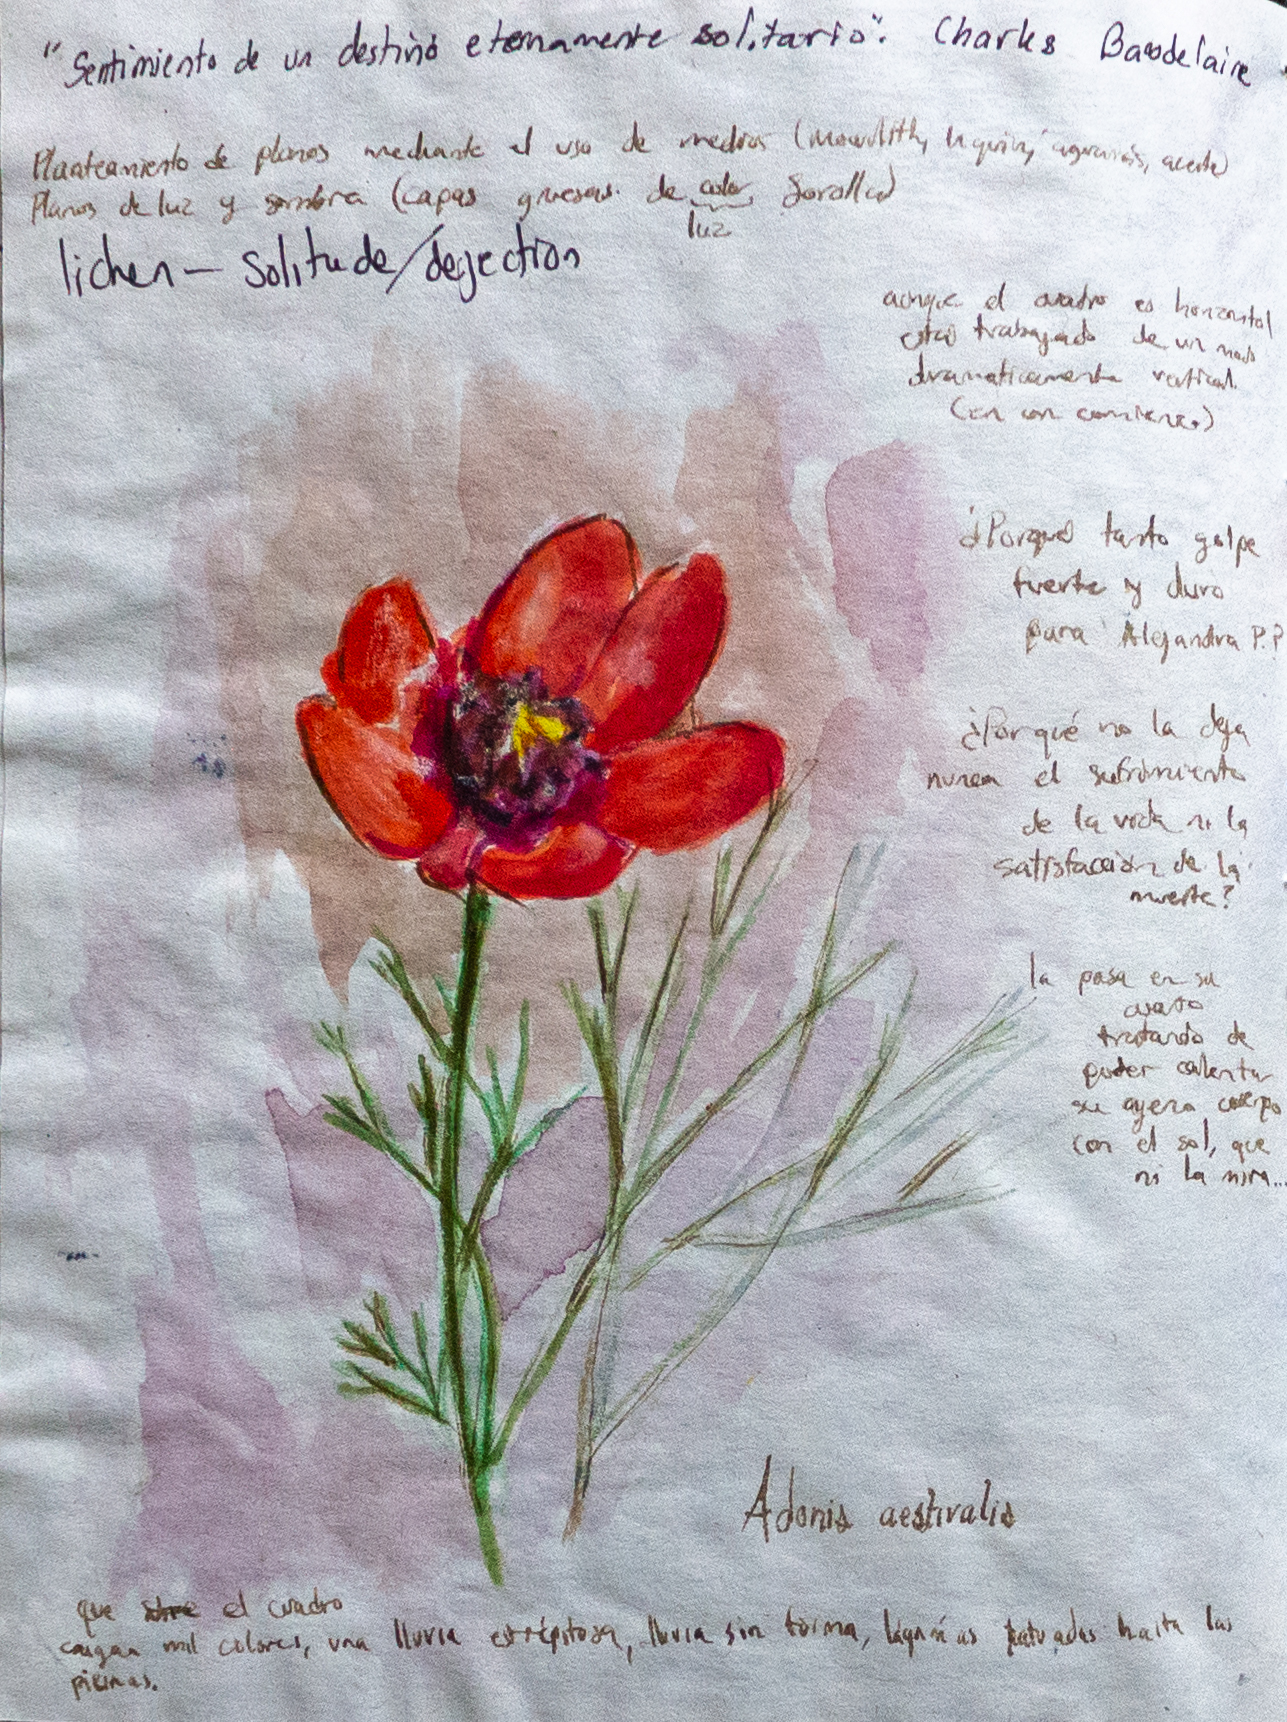 "Sentimiento de un destino eternamente solitario". Charles Baudelaire.
Planteamiento de planos mediante el uso de medios (Mowilith, aguarrás, aceite)
Planos de luz y sombra (capas gruesas de color Sorolla)
luz
lichen — solitude/dejection
aunque el cuadro es horizontal
está trabajado de un modo
dramaticamente vertical.
(en un comienzo)
¿Porqué tanto golpe
fuerte y duro
para Alejandra P.?
¿Por qué no la deja
nunca el sufrimiento
de la vida ni la
satisfacción de la
muerte?
la pasa en su
cuarto
tratando de
poder calentar
su ajeno cuerpo
con el sol, que
ni la mira...
Adonis aestivalis
que sobre el cuadro
caigan mil colores, una lluvia estrépitosa, lluvia sin forma, lágrimas tatuadas hasta las
piernas.